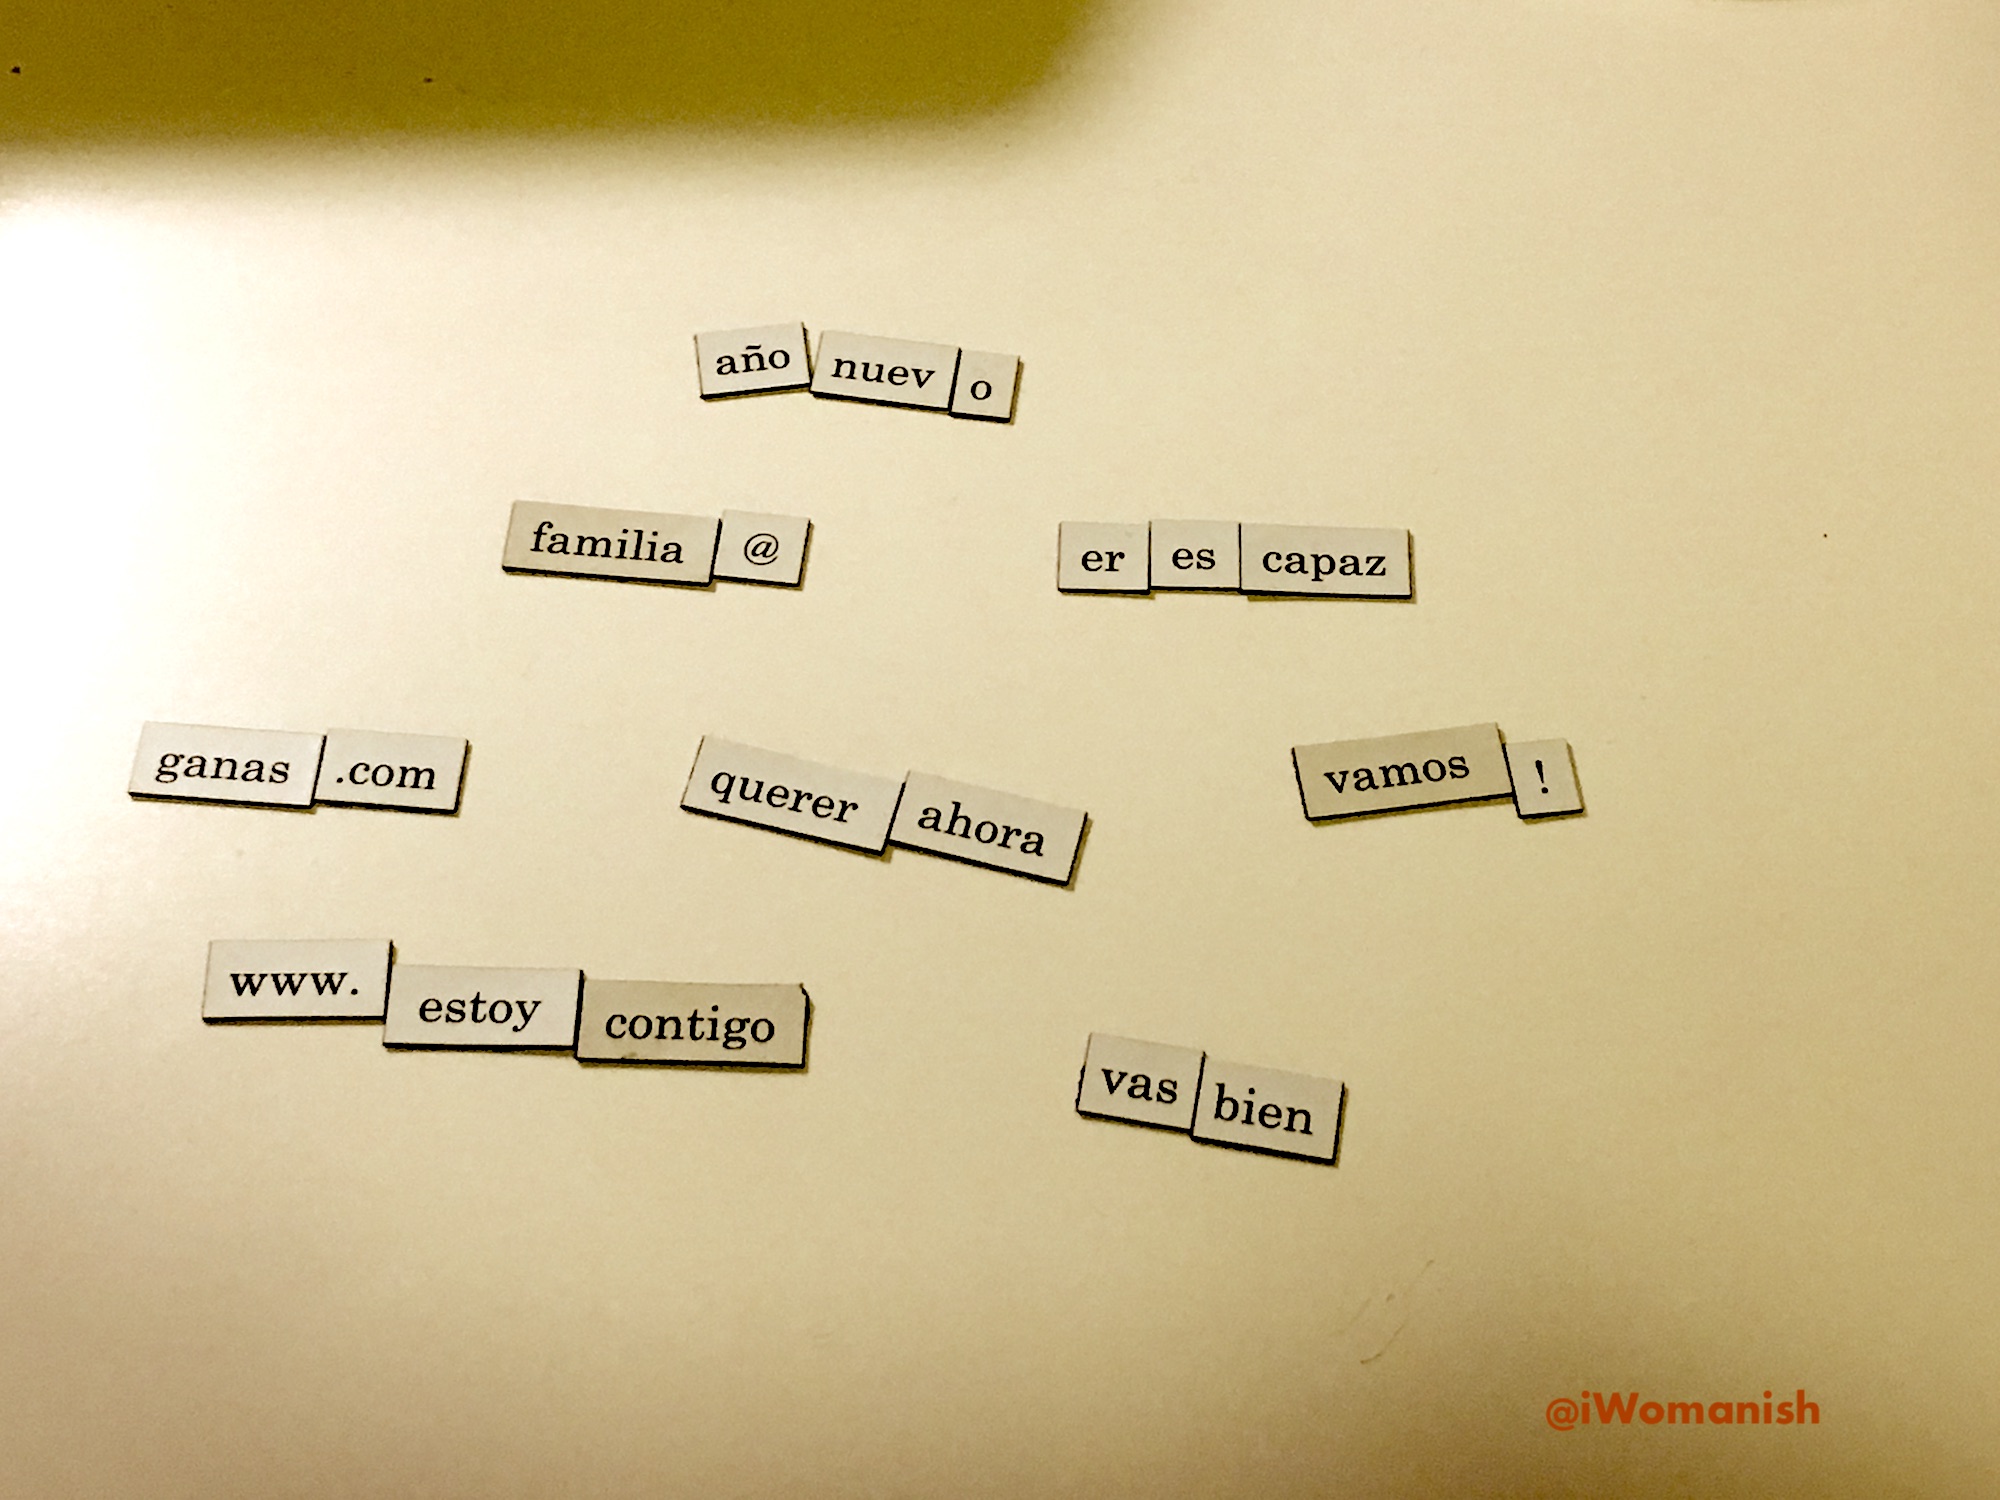 año nuev o
familia @ er es capaz
ganas .com querer ahora vamos !
www. estoy contigo
vas bien
@iWomanish